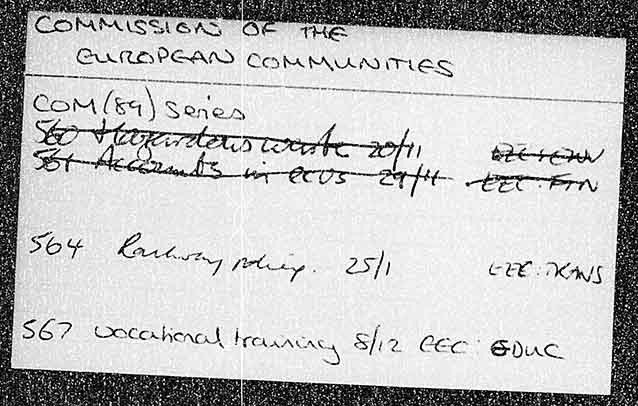 COMMISSION OF THE
EUROPEAN COMMUNITIES
COM(89) Series
560 Hazardous waste 20/11 EEC: ENV
561 Accounts in ecus 29/11 EEC: FIN
564 Railway policy. 25/1 EEC: TRANS
567 vocational training 8/12 EEC: EDUC